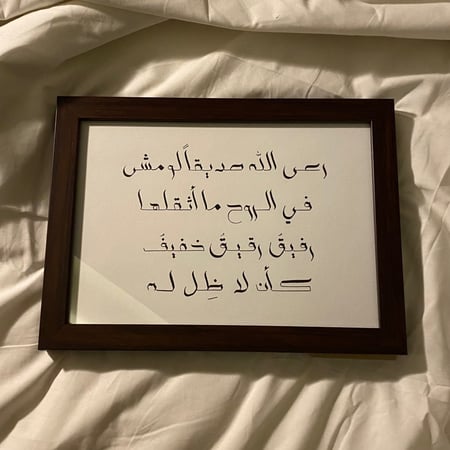 رعى الله صديقاً لو مشى
في الروح ما أثقلها
رفيقٌ رقيقٌ خفيفٌ
كأن لا ظِل له